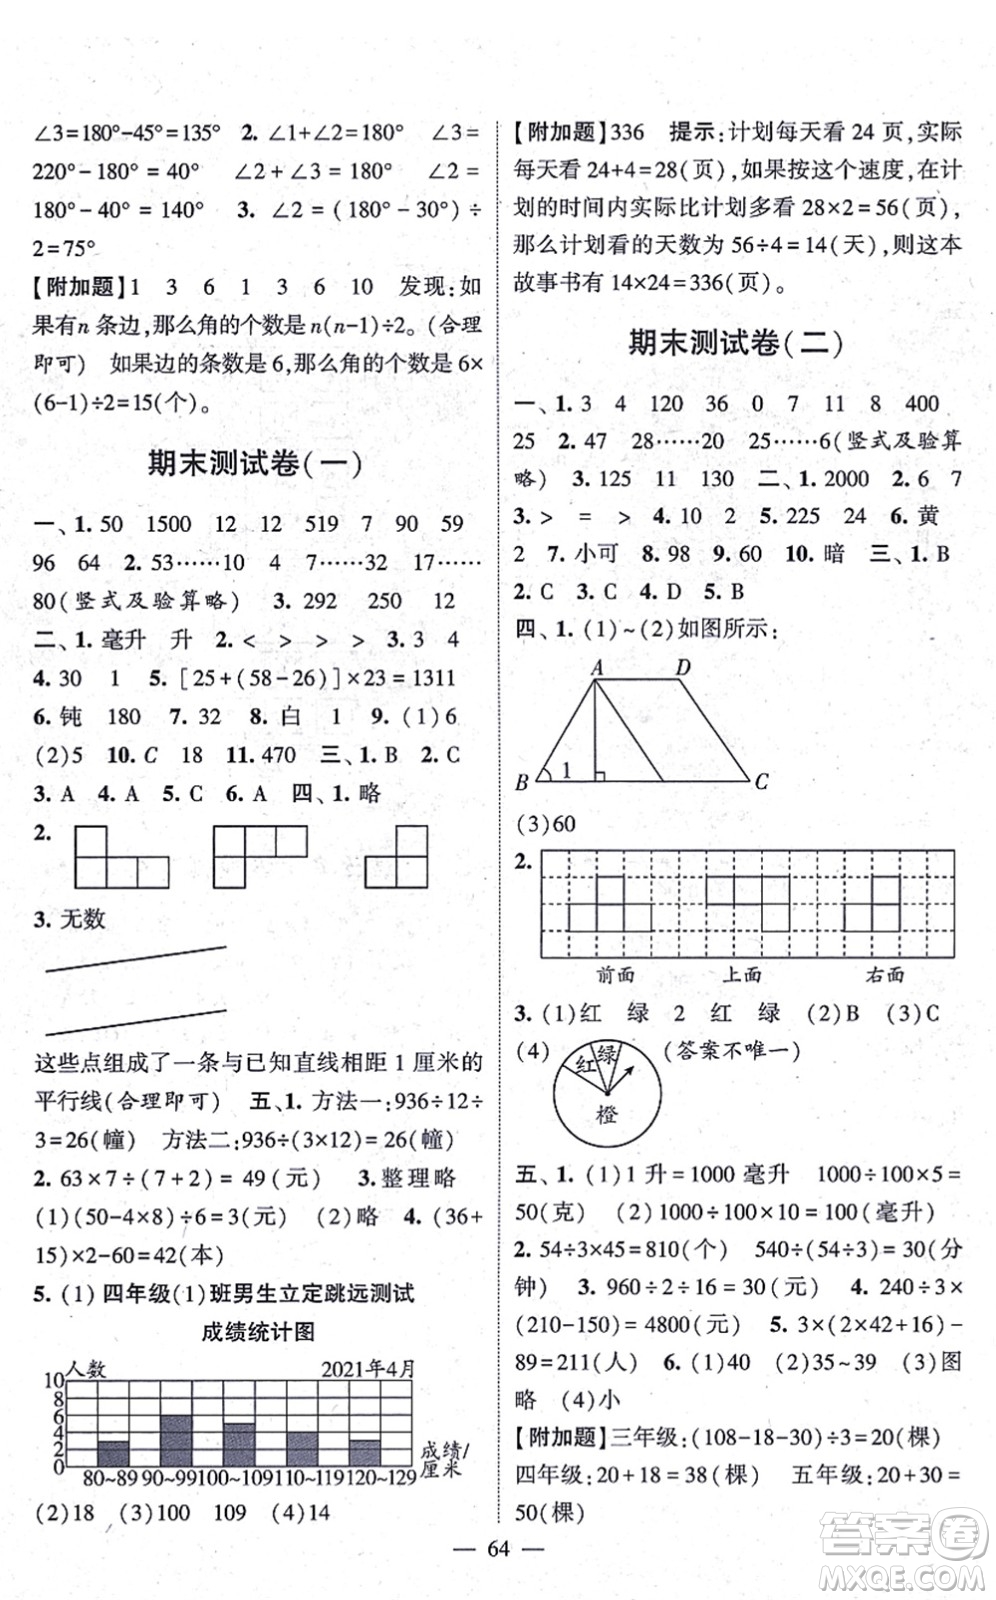 ∠3=180°-45°=135° 2. ∠1+∠2=180° ∠3=
220°-180°=40° ∠2+∠3=180° ∠2=
180°-40°=140° 3. ∠2=(180°-30°)÷
2=75°
【附加题】1 3 6 1 3 6 10 发现:如
果有n条边,那么角的个数是n(n-1)÷2。(合理
即可) 如果边的条数是6,那么角的个数是6×
(6-1)÷2=15(个)。
期末测试卷(一)
一、1. 50 1500 12 12 519 7 90 59
96 64 2. 53……10 4 7……32 17……
80(竖式及验算略) 3. 292 250 12
二、1. 毫升 升 2. < > > > 3. 3 4
4. 30 1 5. [25+(58-26)]×23=1311
6. 钝 180 7. 32 8. 白 1 9. (1)6
(2)5 10. C 18 11. 470 三、1. B 2. C
3. A 4. A 5. C 6. A 四、1. 略
2.
3. 无数
这些点组成了一条与已知直线相距1厘米的
平行线(合理即可) 五、1. 方法一:936÷12÷
3=26(幢) 方法二:936÷(3×12)=26(幢)
2. 63×7÷(7+2)=49(元) 3. 整理略
(1)(50-4×8)÷6=3(元) (2)略 4. (36+
15)×2-60=42(本)
5. (1) 四年级(1)班男生立定跳远测试
成绩统计图
人数 2021年4月
10
8
6
4
2
0
成绩/
厘米
80~89 90~99 100~109 110~119 120~129
(2)18 (3)100 109 (4)14
【附加题】336 提示:计划每天看24页,实际
每天看24+4=28(页),如果按这个速度,在计
划的时间内实际比计划多看28×2=56(页),
那么计划看的天数为56÷4=14(天),则这本
故事书有14×24=336(页)。
期末测试卷(二)
一、1. 3 4 120 36 0 7 11 8 400
25 2. 47 28……20 25……6(竖式及验算
略) 3. 125 11 130 二、1. 2000 2. 6 7
3. > = > 4. 10 2 5. 225 24 6. 黄
2 7. 小可 8. 98 9. 60 10. 暗 三、1. B
2. C 3. D 4. A 5. B
四、1. (1)~(2)如图所示:
A D
B 1 C
(3)60
2.
前面 上面 右面
3. (1)红 绿 2 红 绿 (2)B (3)C
(4) 红 绿 橙 (答案不唯一)
五、1. (1)1升=1000毫升 1000÷100×5=
50(克) (2)1000÷100×10=100(毫升)
2. 54÷3×45=810(个) 540÷(54÷3)=30(分
钟) 3. 960÷2÷16=30(元) 4. 240÷3×
(210-150)=4800(元) 5. 3×(2×42+16)-
89=211(人) 6. (1)40 (2)35~39 (3)图
略 (4)小
【附加题】三年级:(108-18-30)÷3=20(棵)
四年级:20+18=38(棵) 五年级:20+30=
50(棵)
— 64 —
答案圈
MXQE.COM